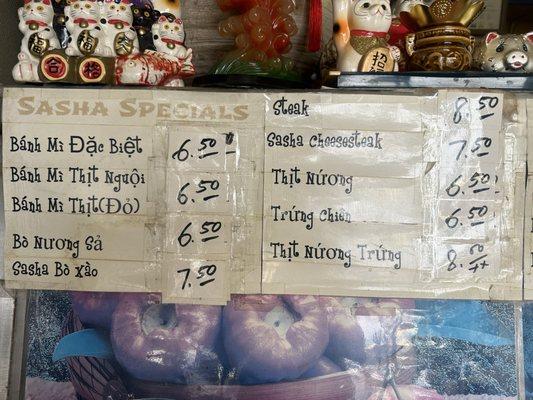 Sasha Specials
Bánh Mì Đặc Biệt 6.50
Bánh Mì Thịt Nguội 6.50
Bánh Mì Thịt(Đỏ)
Bò Nương Sả 6.50
Sasha Bò Xào 7.50
Steak 8.50
Sasha Cheesesteak 7.50
Thịt Nương 6.50
Trứng Chiên 6.50
Thịt Nương Trứng 8.50